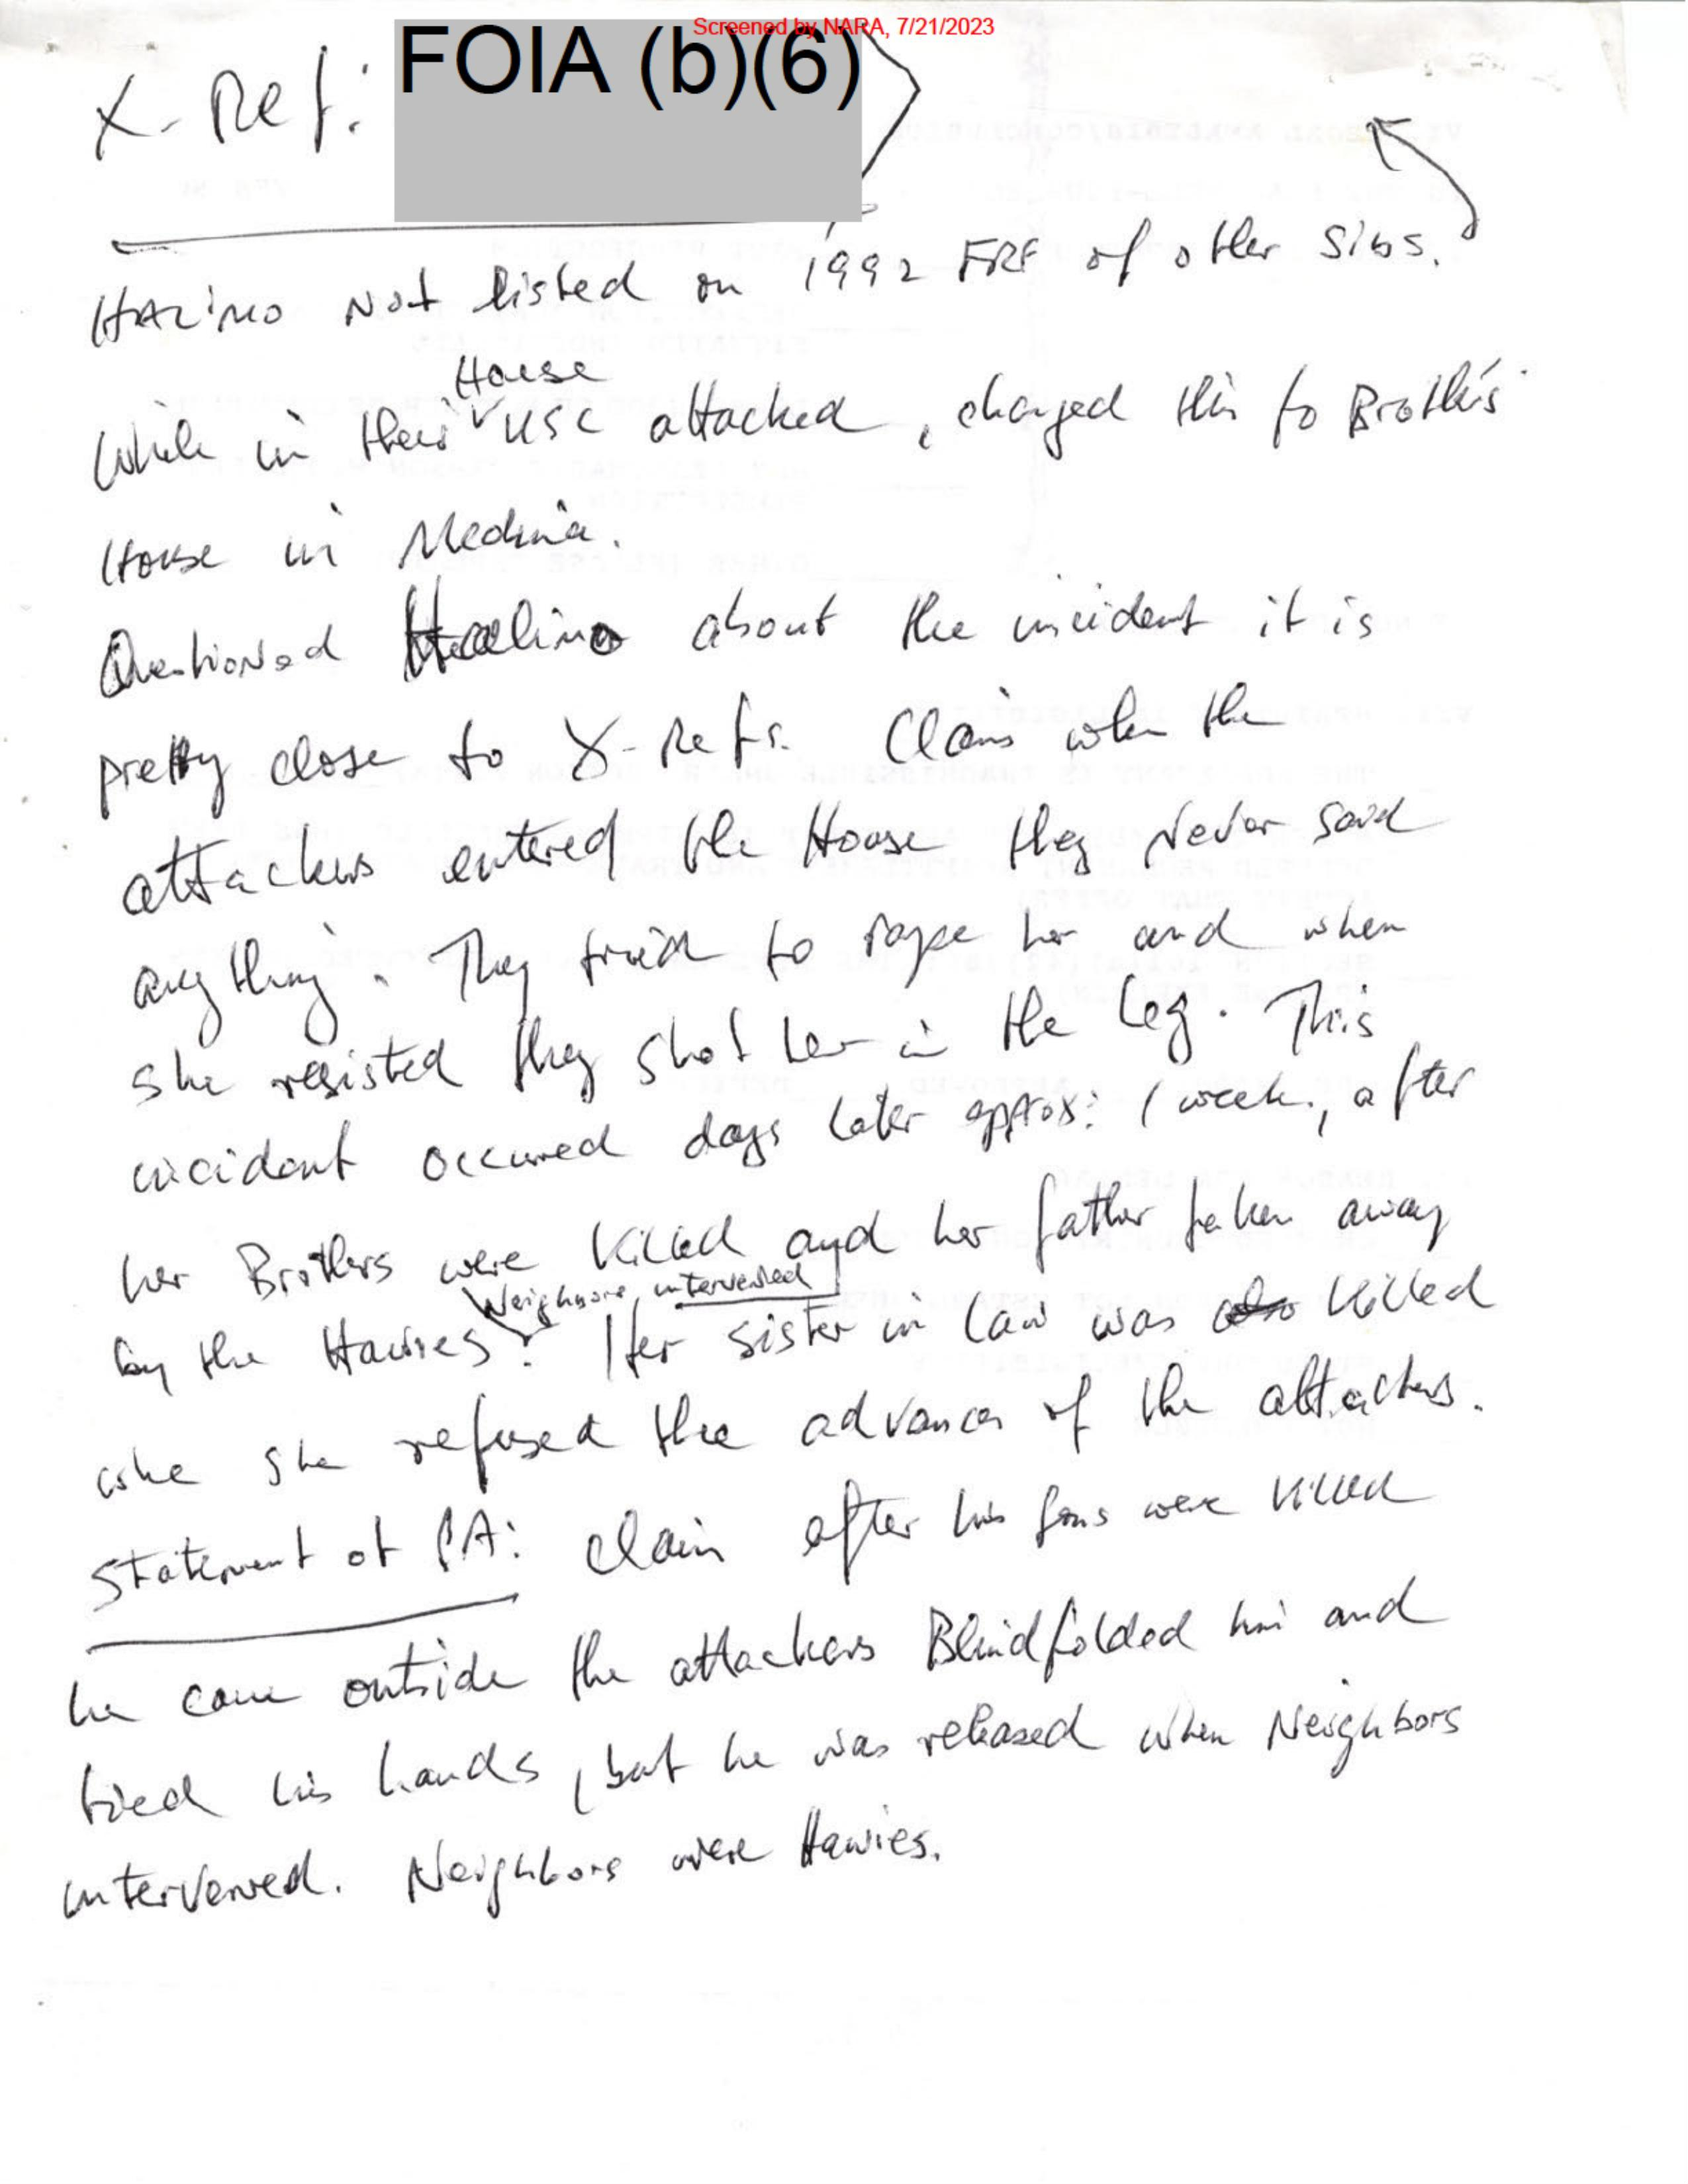 Screened by NARA, 7/21/2023
X-Ref: FOIA (b)(6)
HALIMO Not listed on 1992 FRF of other sibs.
House
While in their USC attacked, changed this to Brother's
House in Medina.
Questioned Halimo about the incident it is
pretty close to X-Refs. Claims when the
attackers entered the House they Never said
anything. They tried to rape her and when
she resisted they shot her in the leg. This
incident occured days later approx: 1 week, after
her Brothers were killed and her father taken away
Neighbors intervened
by the Hawies. Her sister in law was also killed
she refused the advances of the attackers.
Statement of PA: Claim after his sons were killed
he came outside the attackers Blindfolded him and
tied his hands, but he was released when Neighbors
intervened. Neighbors were Hawies.